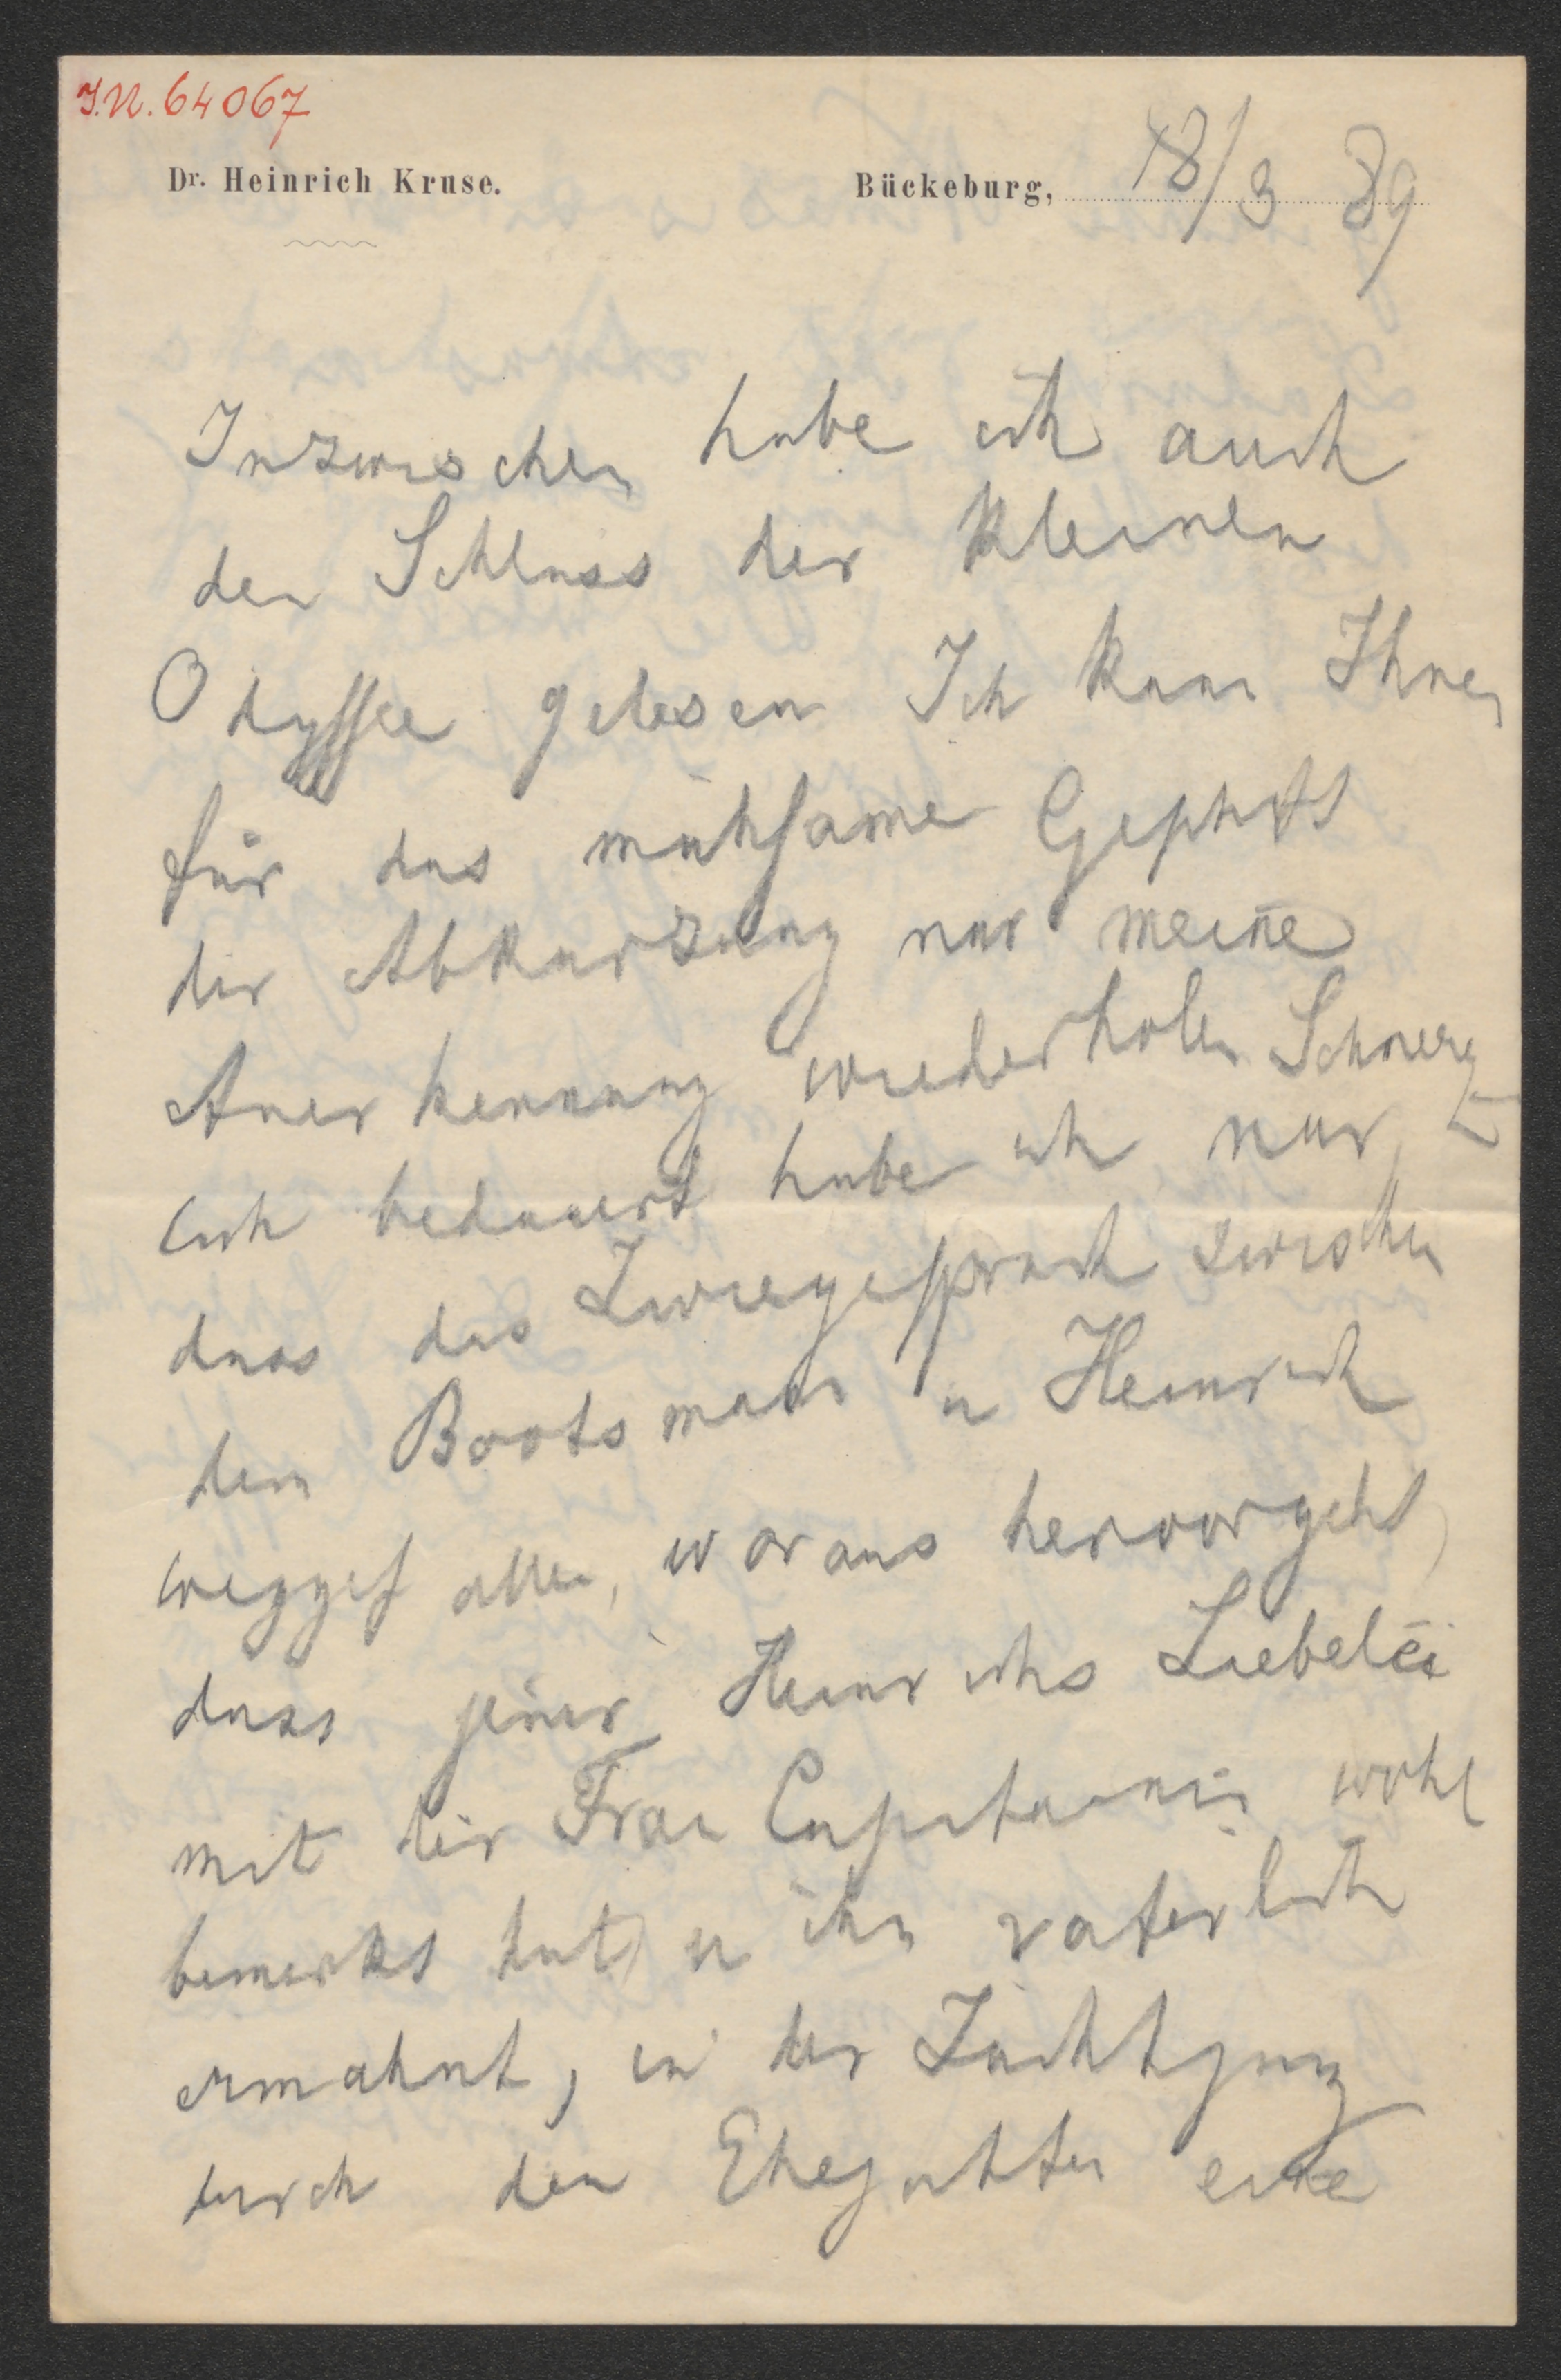 J.N. 64067
Dr. Heinrich Kruse.
Bückeburg, 18/3 89
Inzwischen habe ich auch
den Schluss der kleinen
Odyssee gelesen Ich kann Ihnen
für das mühsame Geschäft
der Abkürzung nur meine
Anerkennung wiederholen Schmerz-
lich bedauert habe ich nur
dass das Zwiegespräch zwischen
dem Bootsmann u Heinrich
weggefallen, woraus hervorgeht,
dass jener Heinrichs Liebelei
mit der Frau Capitainin wohl
bemerkt hat u ihn väterlich
ermahnt, in der Züchtigung
durch den Ehegatten eine